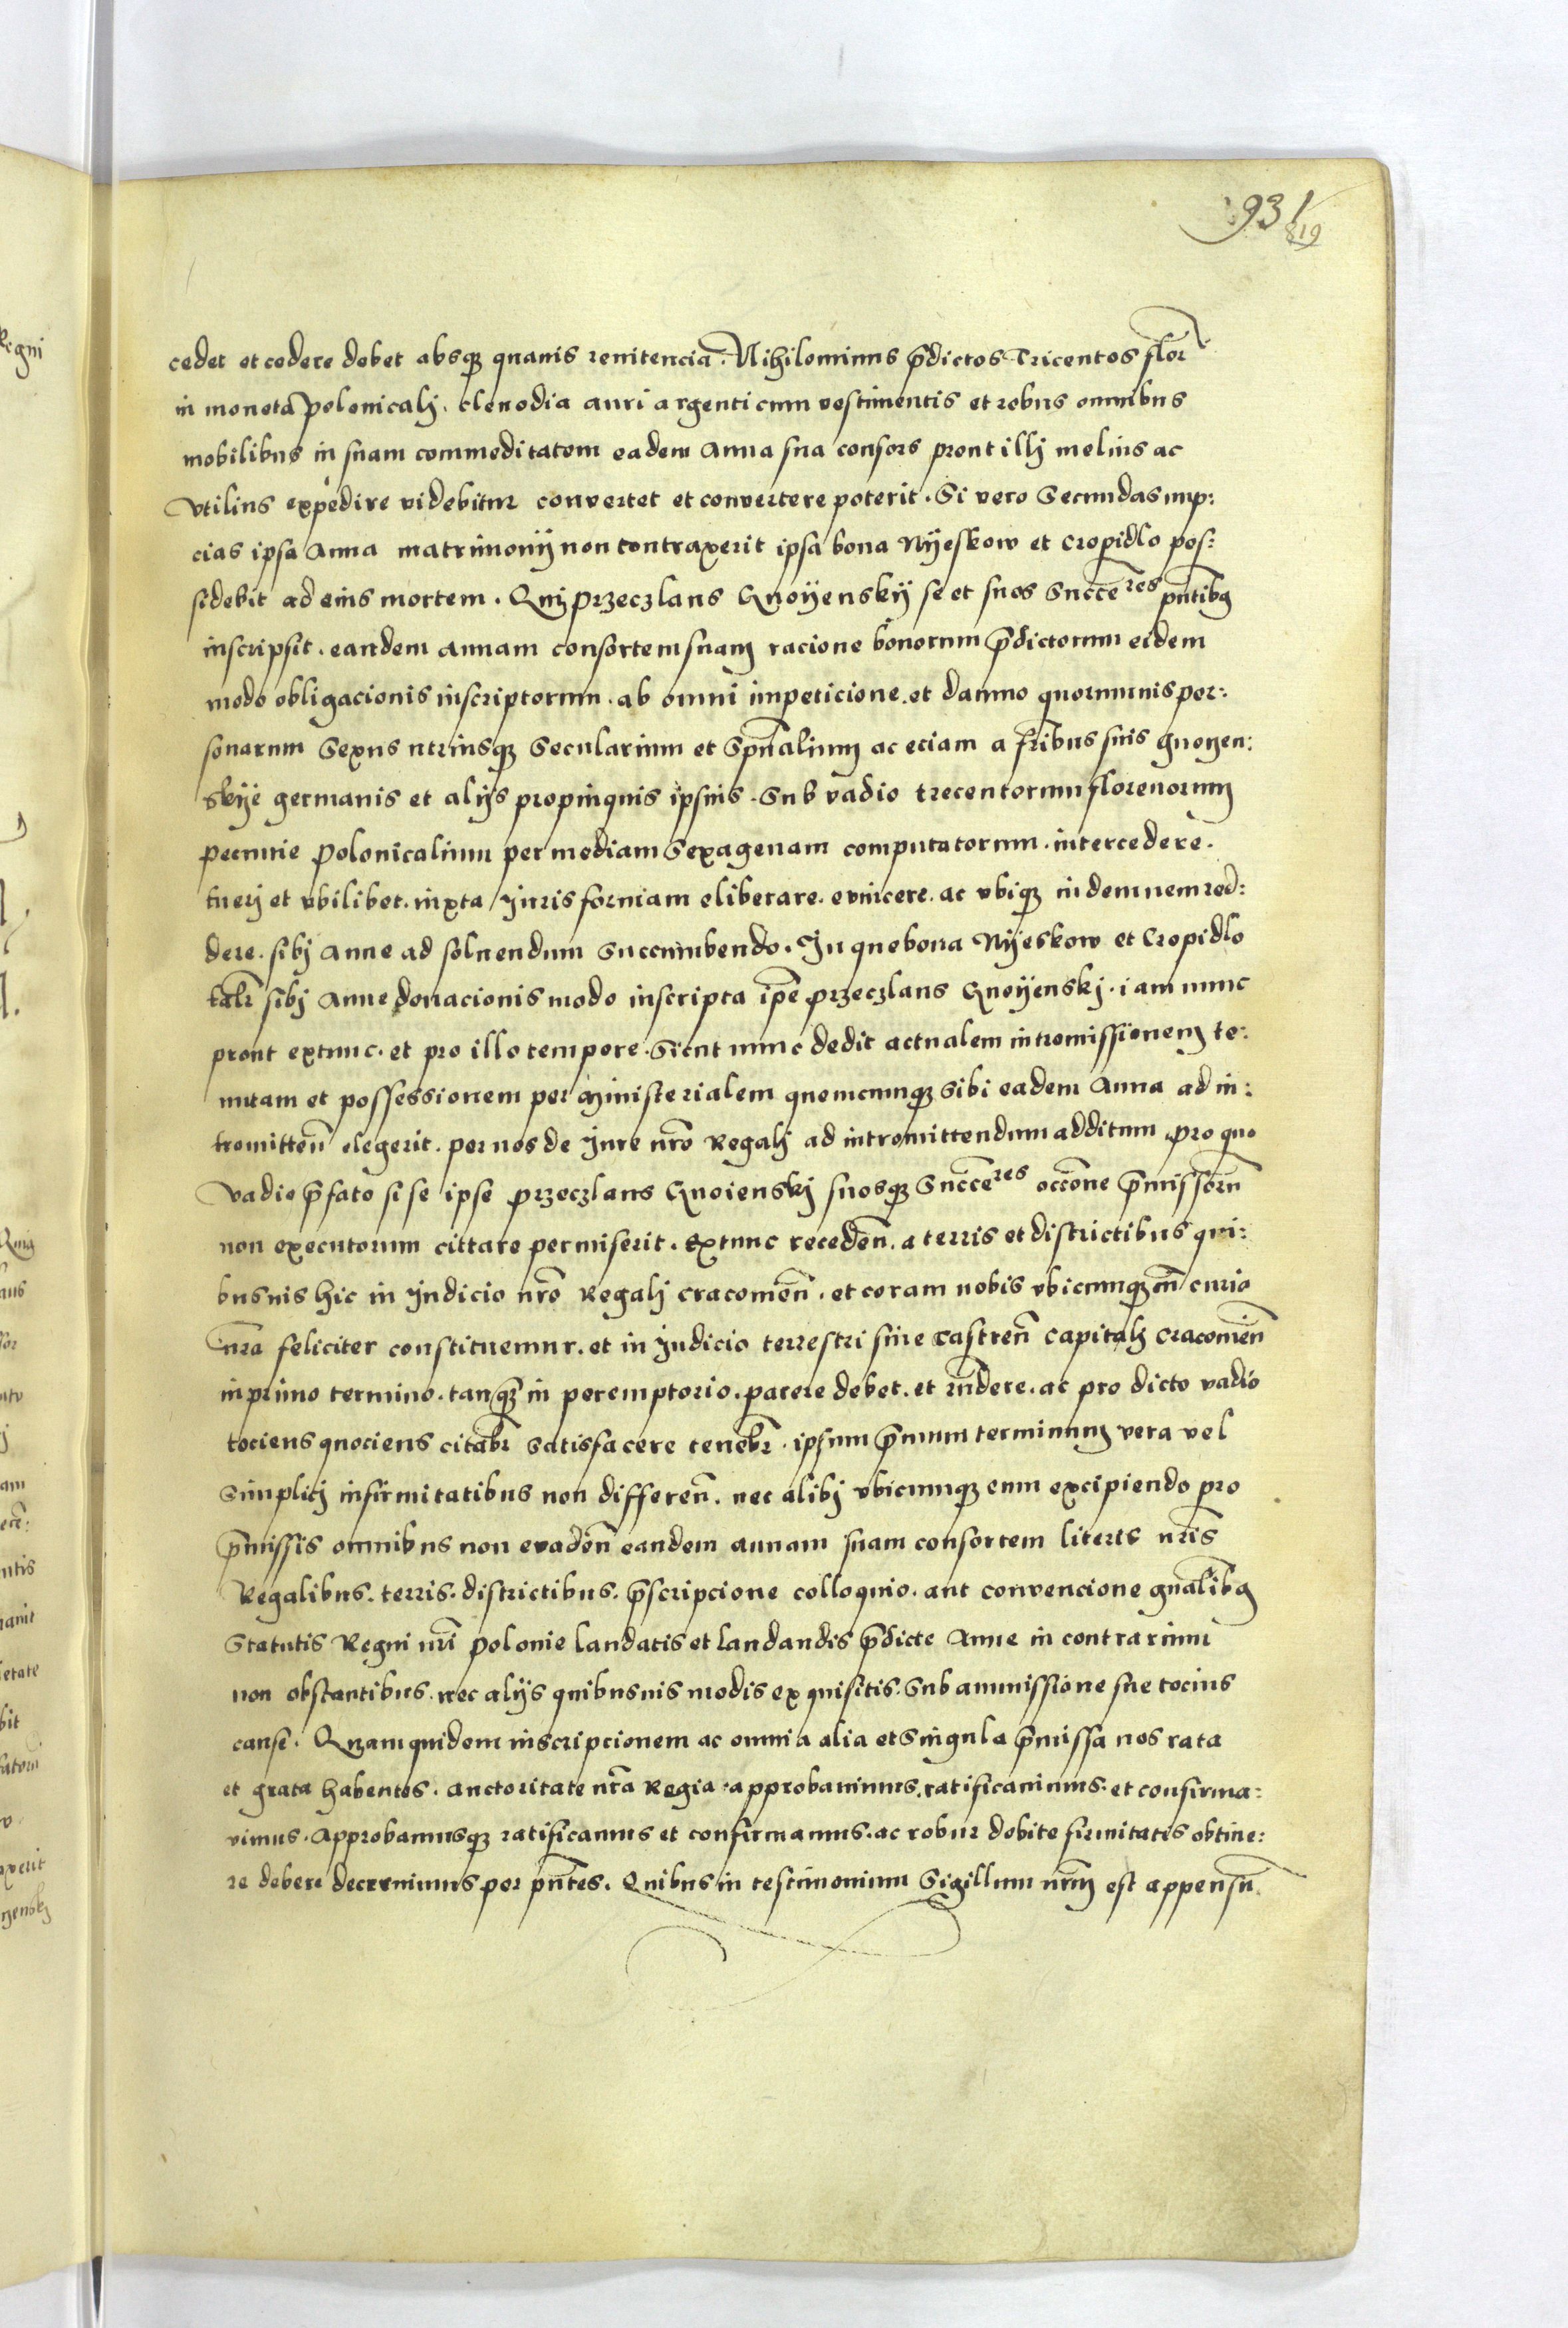 931
819
cedet et cedere debet absqꝫ quauis renitencia. Nihilominus p̄dictos Tricentos flor̄
in moneta polonicalj. clenodia auri argenti cum vestimentis et rebus omnibus
mobilibus in suam commoditatem eadem Anna sua consors prout illj melius ac
vtilius expedire videbitur convertet et convertere poterit. Si vero Secundas nup:
cias ipsa Anna matrimonij non contraxerit ipsa bona Nyeskow et Cropidlo pos:
sidebit ad eius mortem. Quj przeczlaus Gnoyenskÿ se et suos Succēres pn̄tibꝫ
inscripsit. eandem annam consortem suam racione bonorum p̄dictorum eidem
modo obligacionis inscriptorum. ab omni impeticione. et damno quorumuis per:
sonarum Sexus utriusqꝫ Secularium et Sp̄ualium ac eciam a fr̄ibus suis gnoyen:
skÿe germanis et alijs propinquis ipsius. Sub vadio trecentorum florenorum
pecunie polonicalium per mediam Sexagenam computatorum. intercedere.
tuerj et vbilibet. iuxta Juris formam eliberare. evincere. ac vbiqꝫ indemnem red:
dere. sibj Anne ad soluendum Succumbendo. In que bona Nyeskow et Cropidlo
tal̄r sibj Anne donacionis modo inscripta ip̄e przeczlaus Gnoÿenskj. iam nunc
prout extunc. et pro illo tempore. Sicut nunc dedit actualem intromissionem te:
nutam et possessionem per ministerialem quemcunqꝫ Sibi eadem Anna ad in:
tromitten̄ elegerit. per nos de Jure nr̄o Regalj ad intromittendum additum. pro quo
vadio p̄fato si se ipse przeczlaus Gnoienskj suosqꝫ Succēres occōne p̄missorū
non executorum cittare permiserit. Extunc receden̄. a terris et districtibus qui:
busuis hic in Judicio nr̄o Regalj cracouien̄. et coram nobis vbicunqꝫ cū curia
nr̄a feliciter constituemur. et in Judicio terrestri siue castren̄ capitalj cracouien̄
in primo termino. tanqꝫ in peremptorio. parere debet. et rn̄dere. ac pro dicto vadio
tociens quociens citab̄r satisfacere teneb̄r. ipsum p̄mum terminum vera vel
Simplicj infirmitatibus non differen̄. nec alibj vbicunqꝫ eum excipiendo pro
p̄missis omnibus non evaden̄ eandem annam suam consortem literis nr̄is
Regalibus. terris. districtibus. p̄scripcione colloquio. aut convencione gn̄alibꝫ
Statutis Regni nr̄i polonie laudatis et laudandis p̄dicte Anne in contrarium
non obstantibus. nec alijs quibusuis modis exquisitis. Sub ammissione sue tocius
cause. Quam quidem inscripcionem ac omnia alia et Singula p̄missa nos rata
et grata habentes. auctoritate nr̄a Regia approbauimus. ratificauimus. et confirma:
vimus. Approbamusqꝫ ratificamus et confirmamus. ac robur debite firmitatis obtine:
re debere decernimus per pn̄tes. Quibus in testimonium Sigillum nr̄um est appensū.